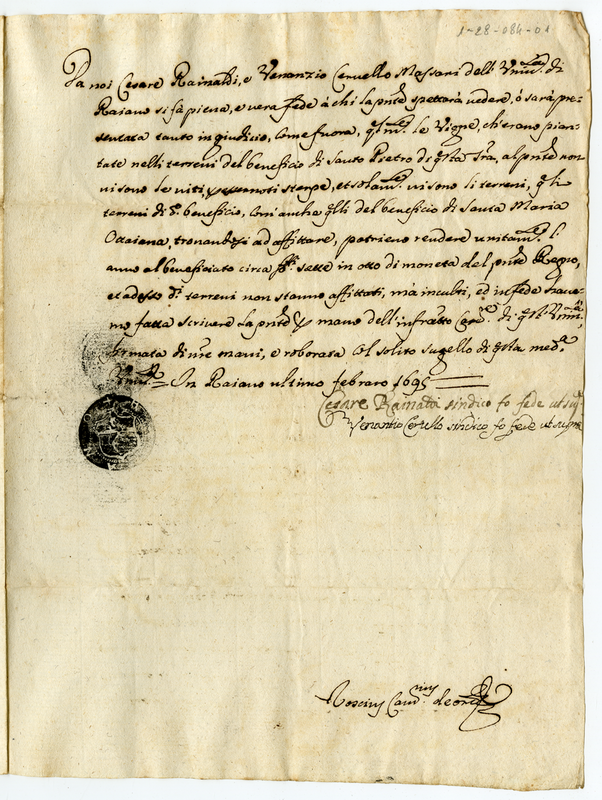 1-28-084-01
Da noi Cesare Rainaldi, e Venanzio Cervello Massari dell'Univ.tà di
Raiano si fà piena, e vera fede à chi la pnte spettarà vedere, ò sarà pre=
sentata tanto in giudicio, come fuora, qlm.te le Vigne, ch'erano pian=
tate nelli terreni del beneficio di Santo Pietro di qsta Tra, al pnte non
vi sono le viti, sterpe, et solam.te vi sono li terreni, qli
terreni di d.o beneficio, com'ancho qlli del beneficio di Santa Maria
Ottaiana, trovandosi ad affittare, potriano rendere unitam.te l'
anno al beneficiato circa sette in otto di moneta del pnte Regno,
et adesso d.i terreni non stanno affittati, mà inculti, ed in fede have=
mo fatta scrivere la pnte p mano dell'infratto Canc.re di qsta Univ.tà,
firmata di nre mani, e roborata col solito sugello di qsta med.a
Univ.tà = In Raiano ultimo febraro 1695
Cesare Rainaldi sindico fo fede ut sup.
Venantio Cervello sindico fo fede ut supra
Canc.rius de ord.e